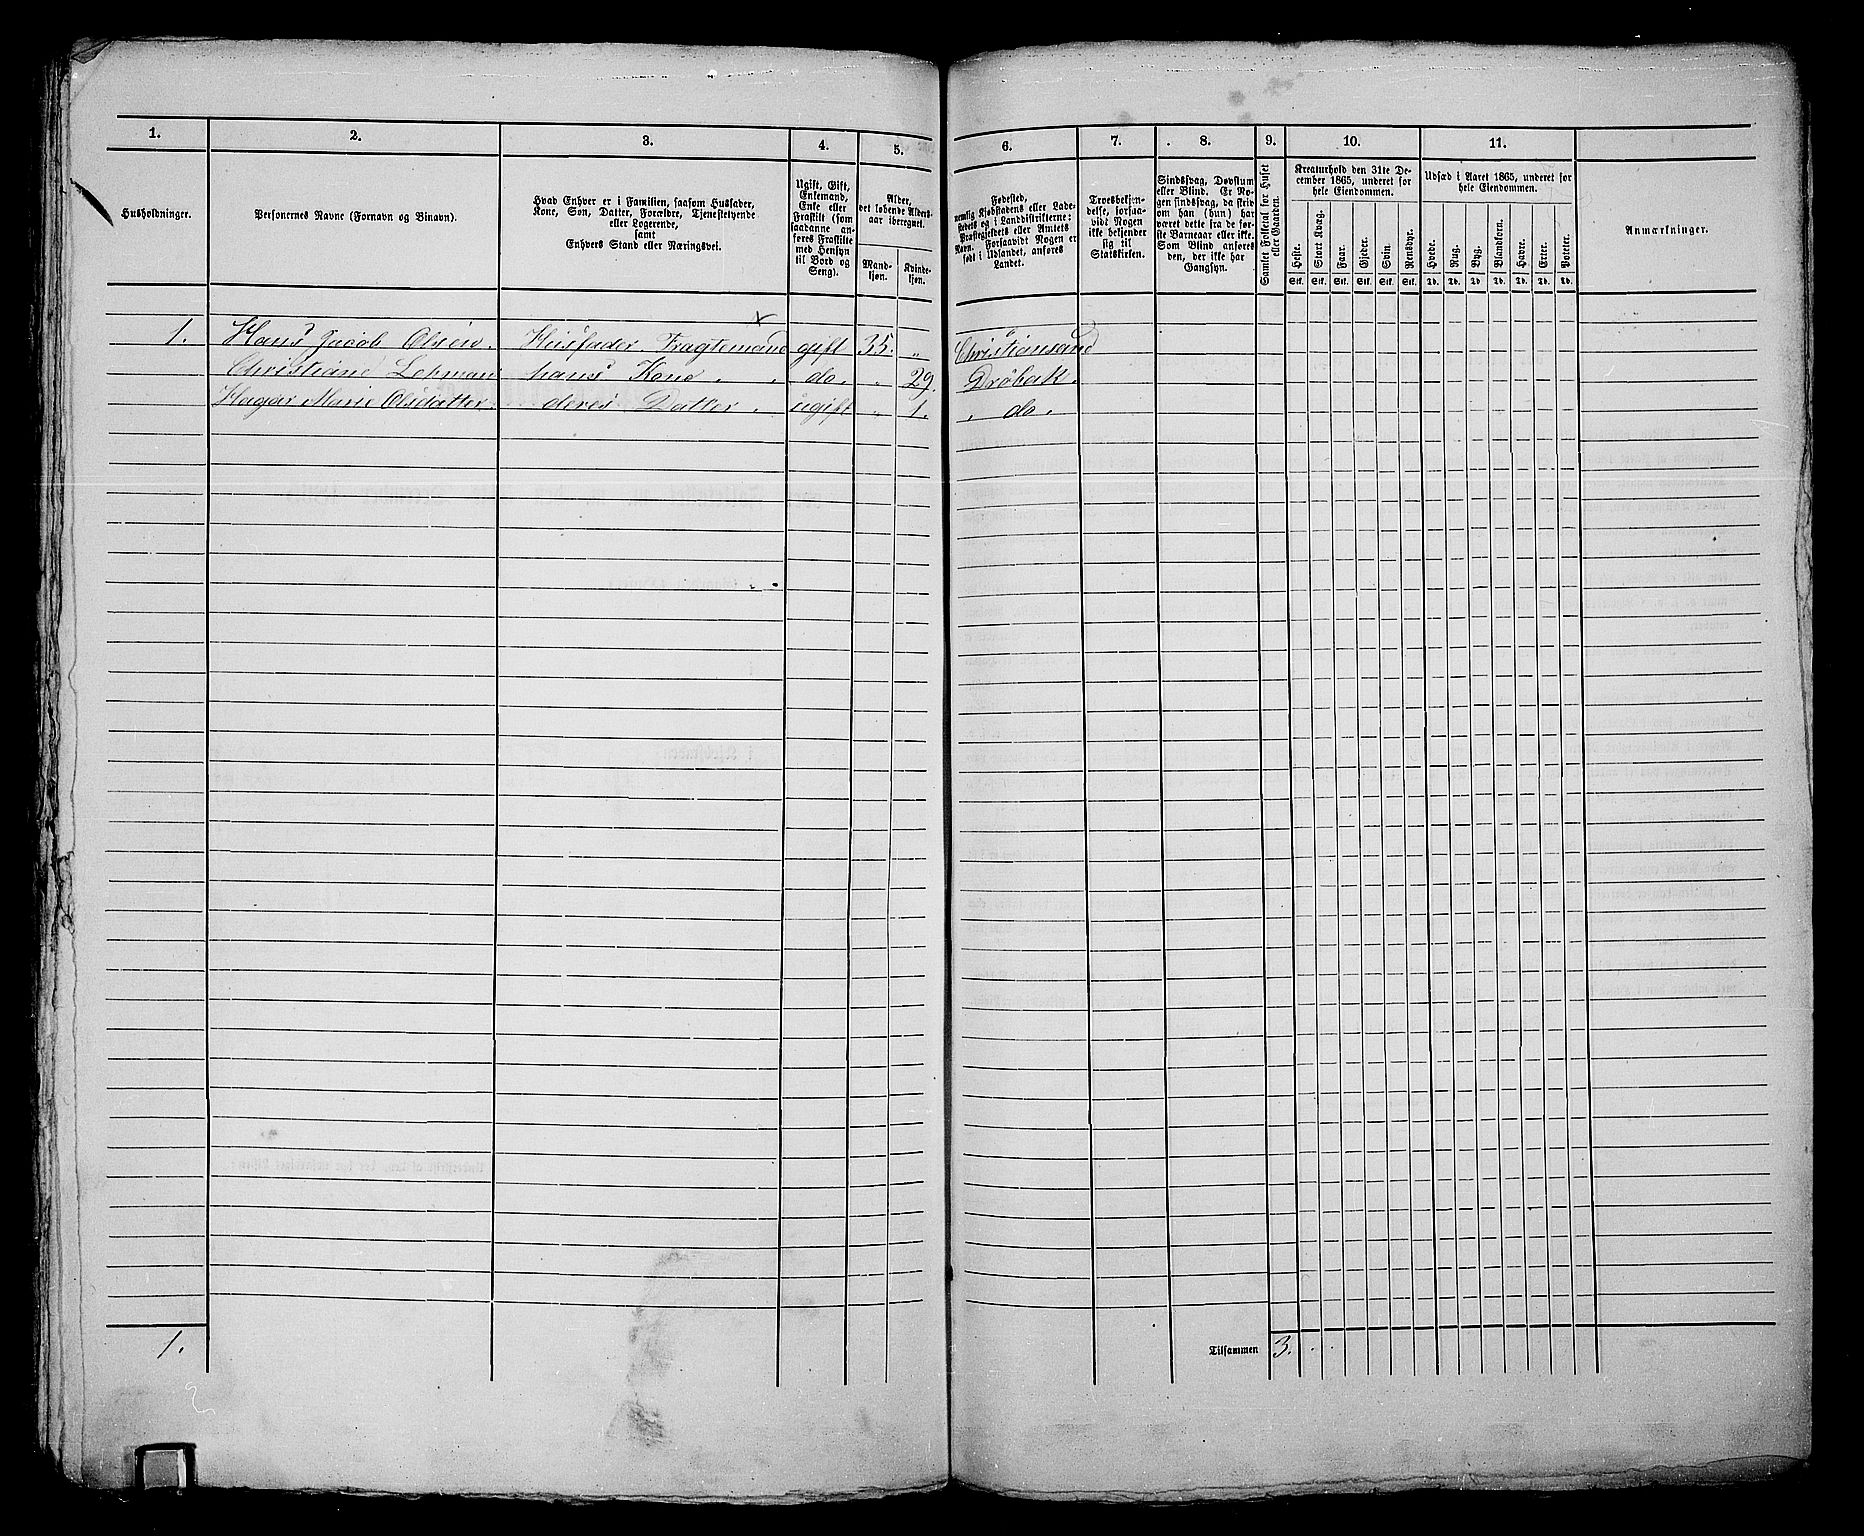 1.
2.
3.
4.
5.
6.
7.
8.
9.
10.
11.
Husholdninger.
Personernes Navne (Fornavn og Binavn).
Hvad Enhver er i Familien, saasom Husfader,
Kone, Søn, Datter, Forældre, Tjenestetyende
eller Logerende,
samt
Enhvers Stand eller Næringsvei.
Ugift, Gift,
Enkemand,
Enke eller
Fraskilt (som
saadanne an-
føres Fraskilte
med Hensyn
til Bord og
Seng).
Alder,
det løbende Alders-
aar iberegnet.
Mand-
kjøn.
Kvinde-
kjøn.
Fødested,
nemlig Kjøbstadens eller Lade-
stedets og i Landdistrikterne:
Præstegjeldets eller Amtets
Navn. Forsaavidt Nogen er
født i Udlandet, anføres
Landet.
Troesbekjen-
delse, forsaa-
vidt Nogen
ikke bekjender
sig til
Statskirken.
Sindssvag, Døvstum
eller Blind. Er No-
gen sindssvag, da skriv
om han (hun) har
været dette fra de før-
ste Barneaar eller ikke.
Som Blind anføres
den, der ikke har
Gangsyn.
Samlet Folketal for Huset
eller Gaarden.
Kreaturhold den 31te De-
cember 1865, underet for
hele Eiendommen.
Heste.
Stort Kvæg.
Faar.
Gjeder.
Svin.
Rensdyr.
Stk. Stk. Stk. Stk. Stk. Stk.
Udsæd i Aaret 1865, underet for
hele Eiendommen.
Hvede.
Rug.
Byg.
Blandkorn.
Havre.
Erter.
Poteter.
Td. Td. Td. Td. Td. Td. Td.
Anmærkninger.
1. Hans Jacob Olsen. Husfader. Fragtemand gift 35. " Christiansand
Christiane Lehman hans Kone. do. " 29. Drøbak.
Hagar Marie Olsdatter. deres Datter. ugift " 1. " do.
1.
Tilsammen 3.